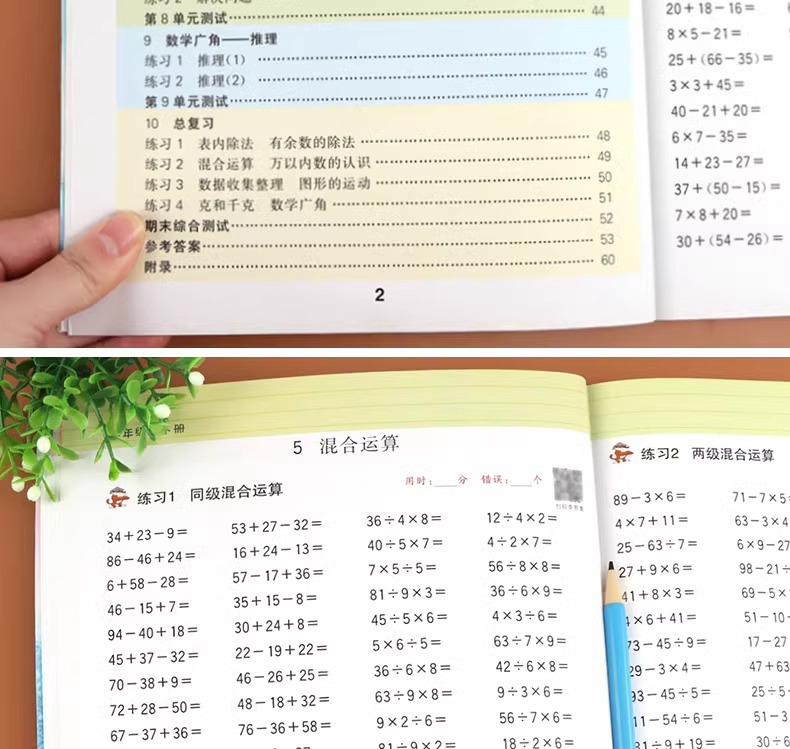 第8单元测试 44
9 数学广角——推理
练习1 推理(1) 45
练习2 推理(2) 46
第9单元测试 47
10 总复习
练习1 表内除法 有余数的除法 48
练习2 混合运算 万以内数的认识 49
练习3 数据收集整理 图形的运动 50
练习4 克和千克 数学广角 51
期末综合测试 52
参考答案 53
附录 60
2
20+18-16=
8×5-21=
25+(66-35)=
3×3+45=
40-21+20=
6×7-35=
14+23-27=
37+(50-15)=
7×8+20=
30+(54-26)=
5 混合运算
练习1 同级混合运算
用时:____分 错误:____个
34+23-9= 53+27-32= 36÷4×8= 12÷4×2=
86-46+24= 16+24-13= 40÷5×7= 4÷2×7=
6+58-28= 57-17+36= 7×5÷5= 56÷8×8=
46-15+7= 35+15-8= 81÷9×3= 36÷6×9=
94-40+18= 30+24+8= 45÷5×6= 4×3÷6=
45+37-32= 22-19+22= 5×6÷5= 63÷7×9=
70-38+9= 46-26+25= 36÷6×8= 42÷6×8=
72+28-50= 48-18+32= 63÷9×8= 9÷3×6=
67-37+36= 76-36+58= 9×2÷6= 56÷7×6=
81÷9×6= 18÷2×6=
练习2 两级混合运算
89-3×6= 71-7×5
4×7+11= 63-3×4
25-63÷7= 6×9-27
27+9×6= 98-21÷
41+8×3= 69-5×
4×6+41= 51-10
73-45÷9= 17-27
29-3×4= 47+63
93-45÷5= 25÷5
11-54÷6= 51-3
31÷9+19= 30÷6